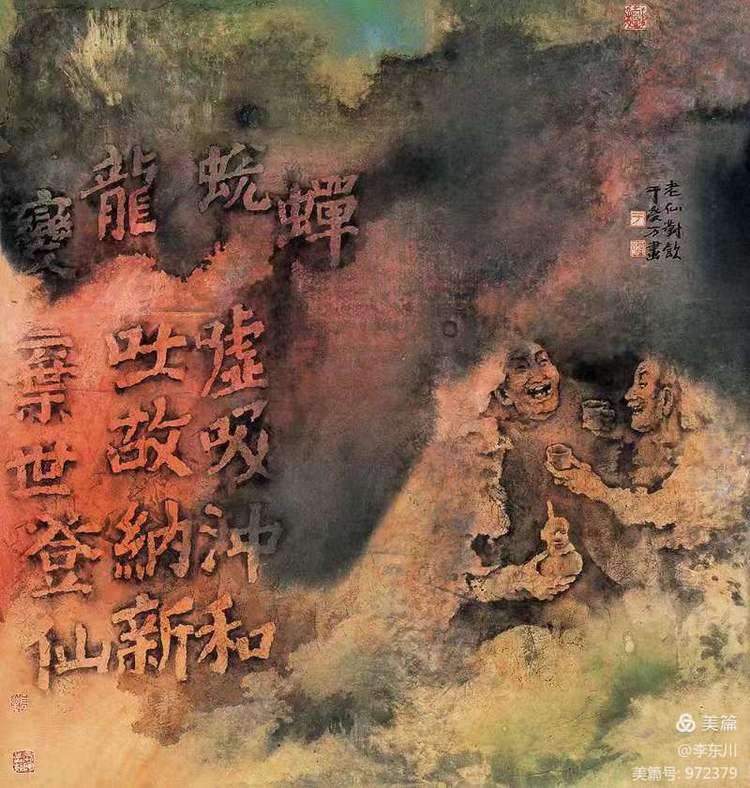 老仙對飲
于受万畫
蟬蛻龍變
嘘吸沖和
吐故納新
棄世登仙
美篇
@李东川
美篇号: 972379